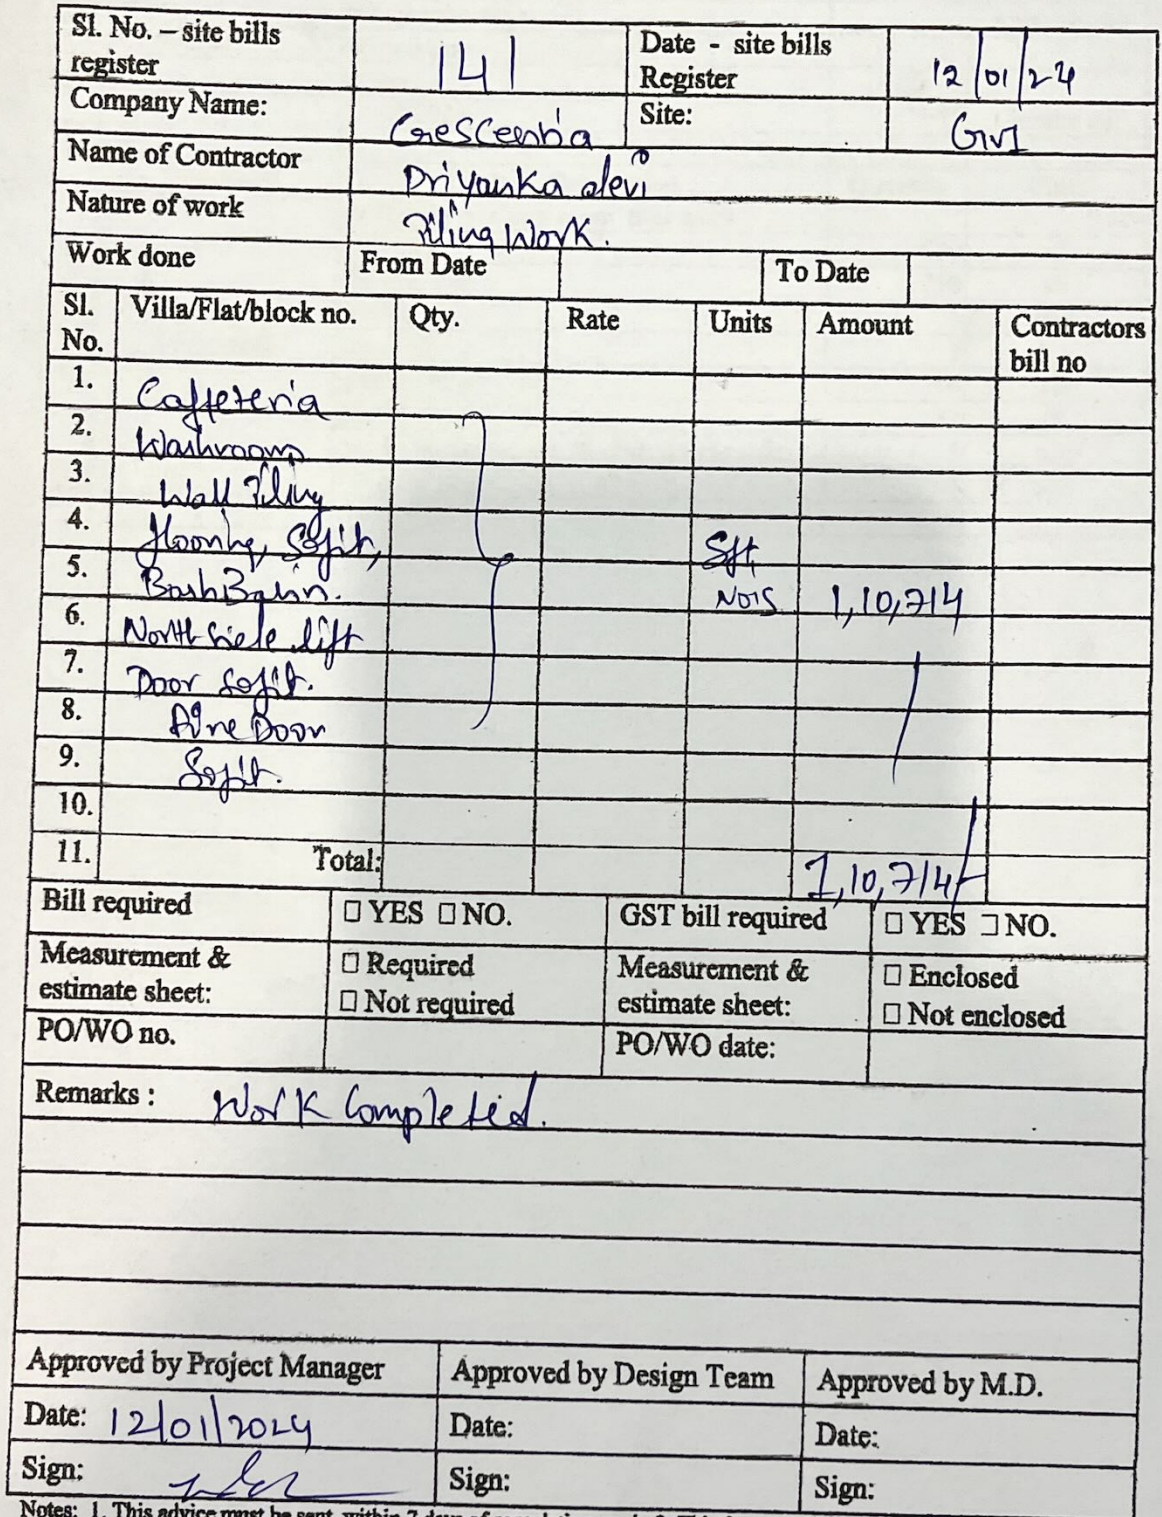 Sl. No. – site bills register 141 Date - site bills Register 12/01/24
Company Name: Crescentia Site: GV1
Name of Contractor Priyanka devi
Nature of work Tiling Work.
Work done From Date To Date
Sl. No. Villa/Flat/block no. Qty. Rate Units Amount Contractors bill no
1. Caffeteria
2. Washrooms
3. Wall Tiling
4. Flooring, Sofit, Sft,
5. Nos 1,10,714
6. North side lift
7. Door Sofit.
8. Fire Door
9. Sofit.
10.
11. Total: 1,10,714/-
Bill required □ YES □ NO. GST bill required □ YES □ NO.
Measurement & estimate sheet: □ Required □ Not required Measurement & estimate sheet: □ Enclosed □ Not enclosed
PO/WO no. PO/WO date:
Remarks : Work Completed.
Approved by Project Manager Approved by Design Team Approved by M.D.
Date: 12/01/2024 Date: Date:
Sign: Sign: Sign:
Notes: 1. This advice must be sent within 7 days of